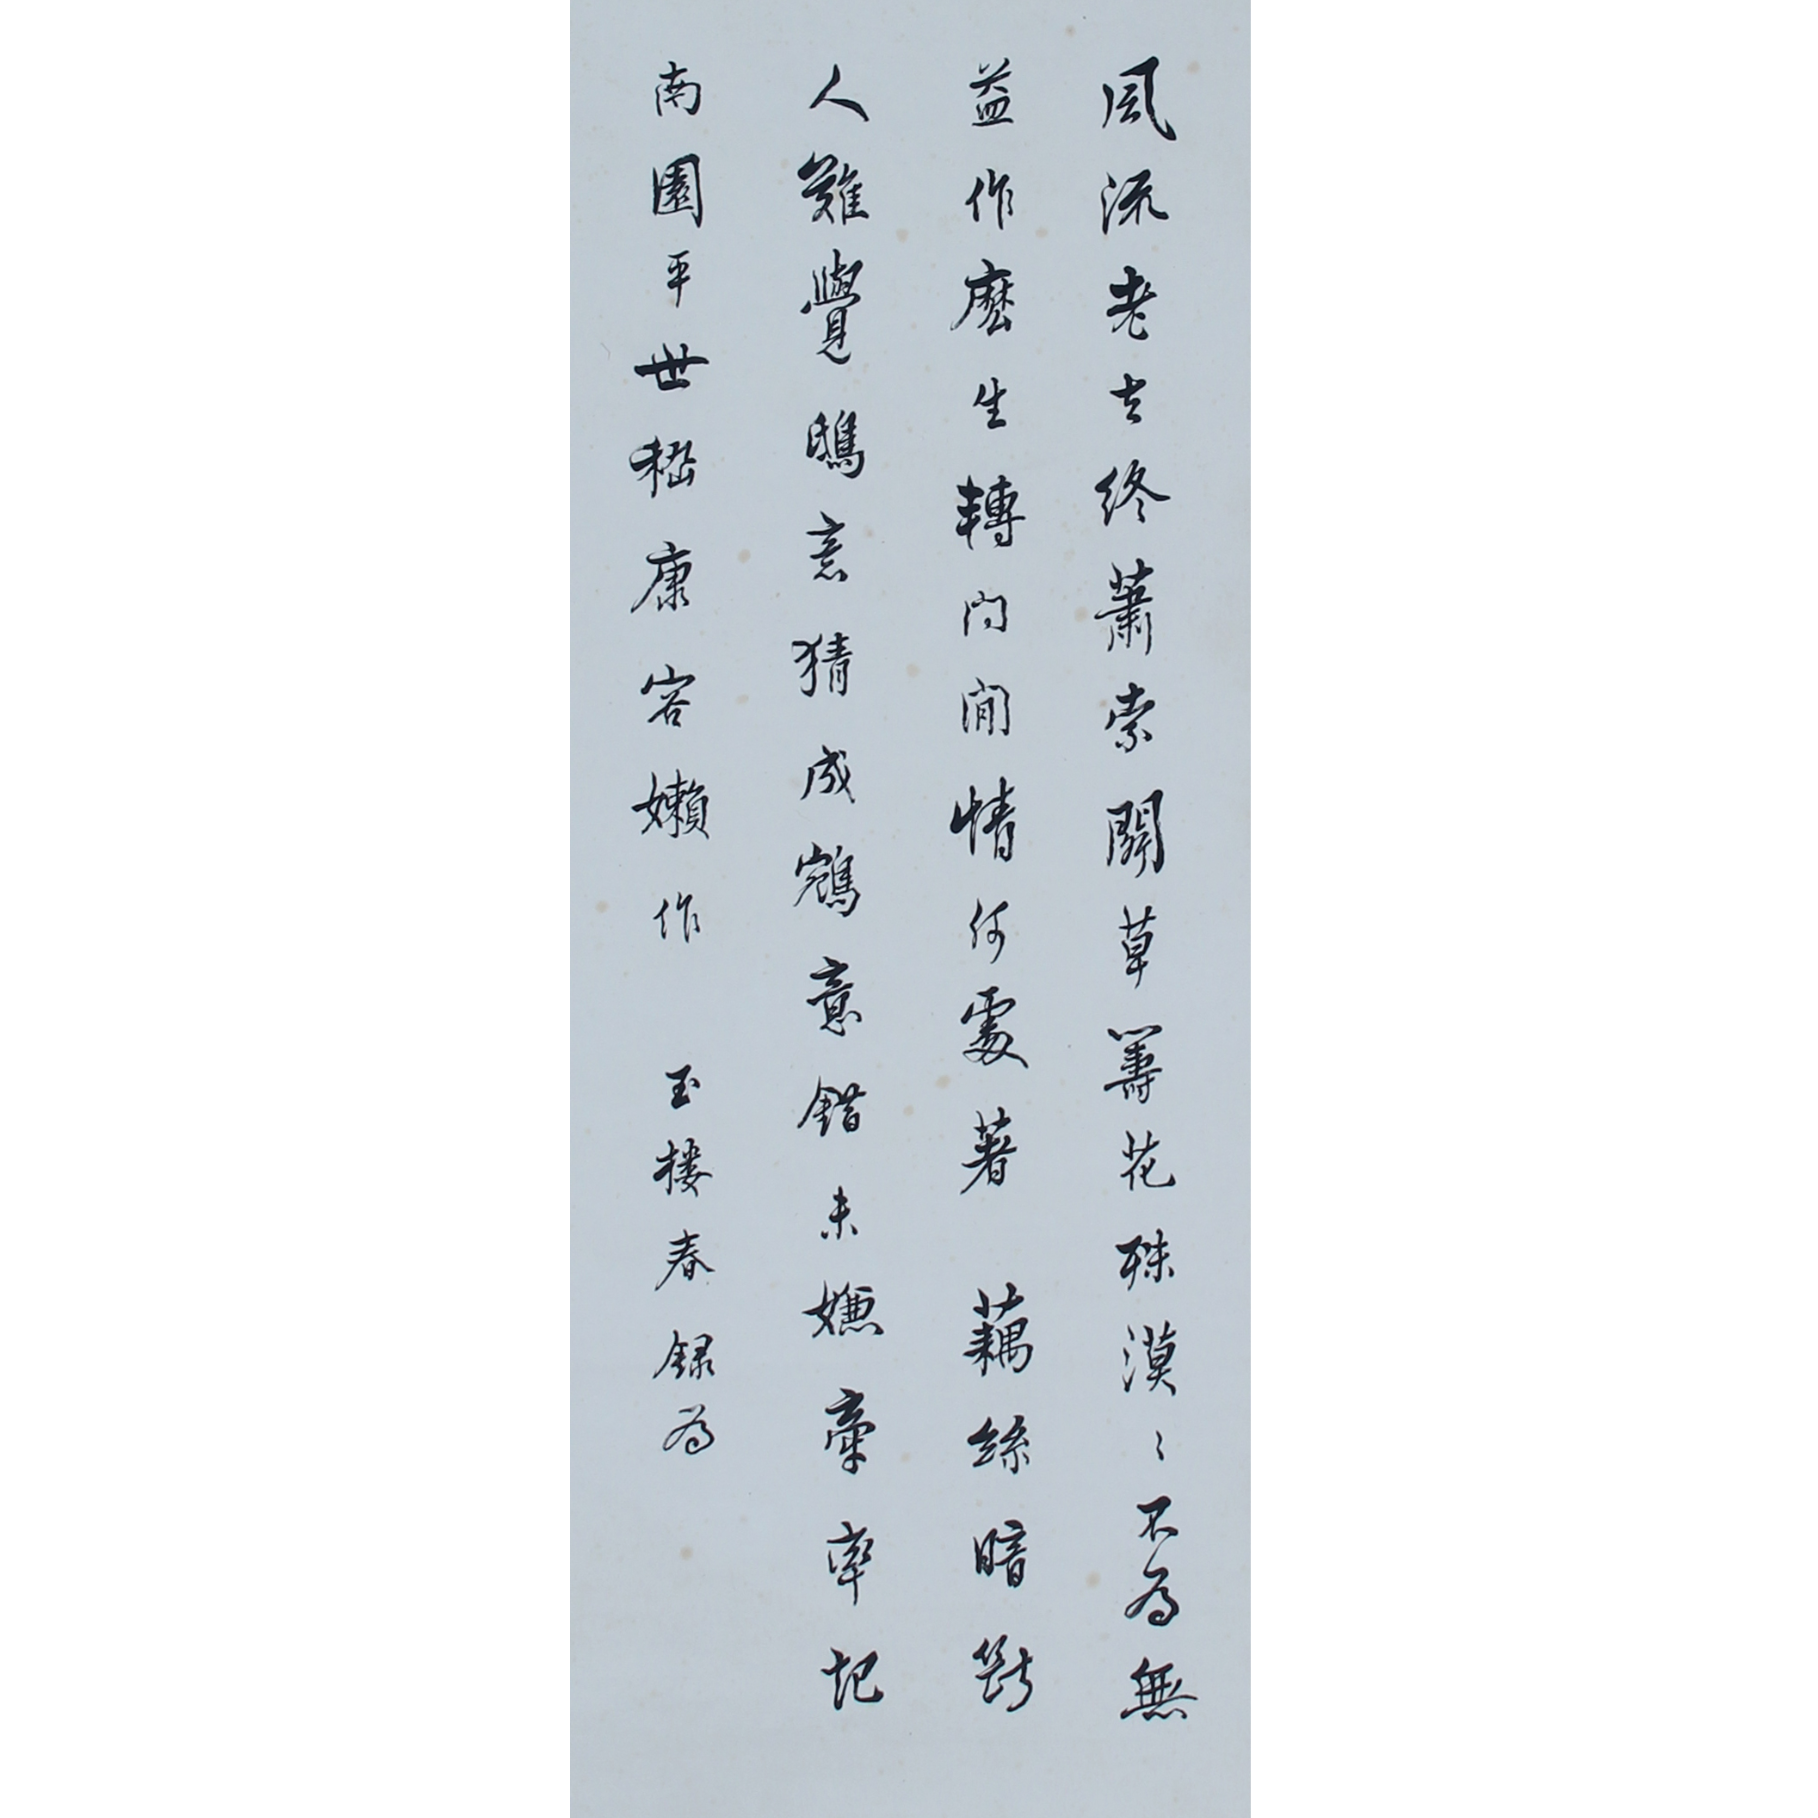 風流老去終蕭索鬭草籌花殊漠〻不為無
益作麼生轉問閒情何處著 藕絲暗斷
人難覺鴟意猜成鵷意錯未嫌牽率記
南園平世嵇康容嬾作 玉樓春録為